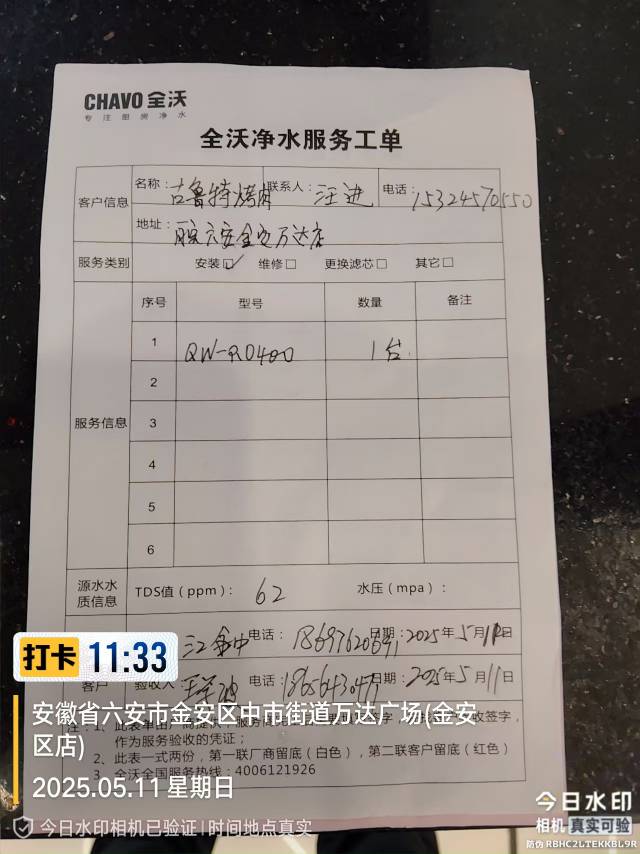 CHAVO 全沃
专注厨房净水
全沃净水服务工单
客户信息 名称：古鲁特烤肉 联系人：汪进 电话：15324570550
地址：六安金安万达店
服务类别 安装☑ 维修□ 更换滤芯□ 其它□
服务信息 序号 型号 数量 备注
1 QW-RO400 1台
2
3
4
5
6
源水水质信息 TDS值（ppm）：62 水压（mpa）：
电话： 日期：2025年5月11日
客户 验收人 电话： 日期：2025年5月11日
作为服务验收的凭证；
2、此表一式两份，第一联厂商留底（白色），第二联客户留底（红色）
3、全沃全国服务热线：4006121926
打卡 11:33
安徽省六安市金安区中市街道万达广场(金安
区店)
2025.05.11 星期日
今日水印相机已验证 | 时间地点真实
今日水印
相机 真实可验
防伪 RBHC2LTEKKBL9R